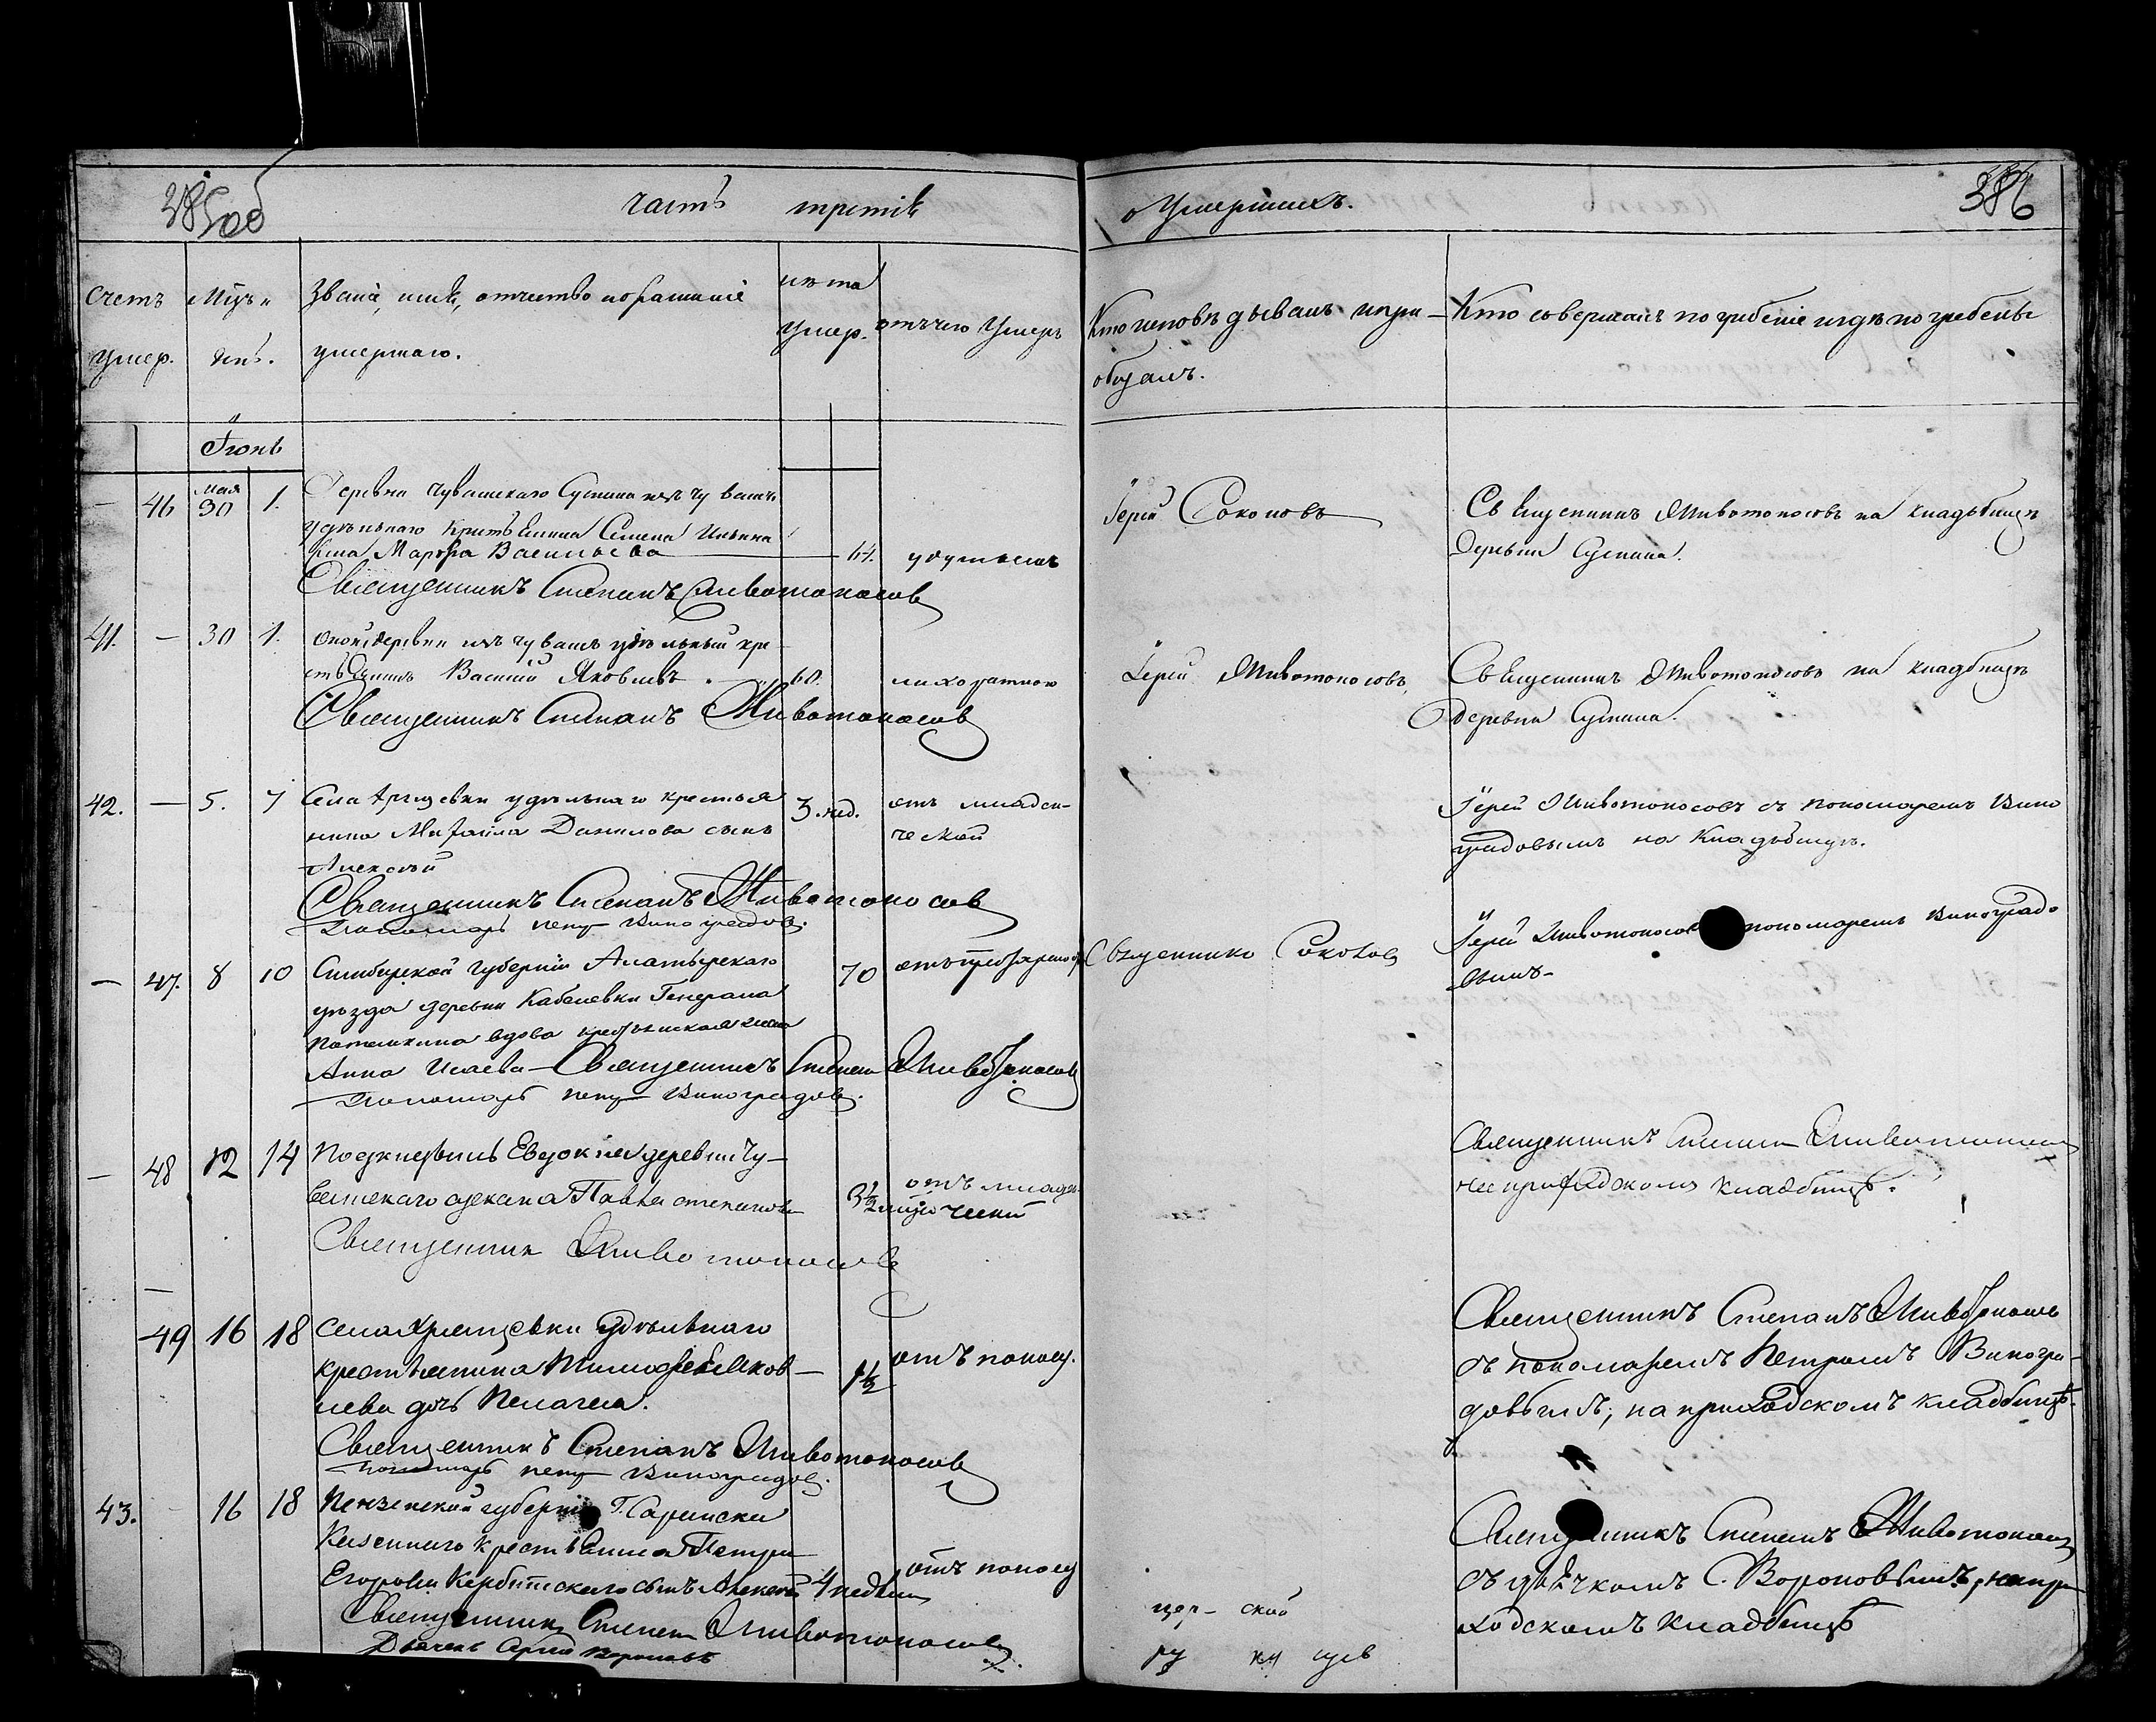 385об
часть третія
о Умершихъ.
386
Счетъ умер.
Мцъ и день.
Званіе, имя, отчество и фамилія
умершаго.
лѣта
умер.
отъ чего умеръ
Кто исповѣдывалъ и при-
общалъ.
Кто совершалъ погребеніе и гдѣ погребены
Іюнь
— 46 мая 30 1.
Деревни Чувашскаго Сускана изъ чувашъ
удѣльнаго крестьянина Семена Ильина
жена Марфа Васильева 64.
удушьемъ
Іерей Соколовъ
Священникъ Животоносовъ на кладбищѣ
деревни Сускана.
Священникъ Степанъ Животоносовъ
41. — 30 1.
Оной деревни изъ чувашъ удѣльный кре-
стьянинъ Василий Яковлевъ 60.
лихораткою
Іерей Животоносовъ,
Священникъ Животоносовъ на кладбищѣ
деревни Сускана.
Священникъ Степанъ Животоносовъ
42. — 5. 7
Села удѣльнаго крестья
нина Михаила Данилова сынъ
Алексѣй
3. нед.
отъ младен-
ческой
Іерей Животоносовъ съ пономаремъ Вино
градовымъ на кладбищѣ.
Священникъ Степанъ Животоносовъ
Пономарь Петръ Виноградовъ.
— 47. 8 10
Симбирской губерніи Алатырскаго
уѣзда деревни Кабаевки Генерала
Потемкина вдова крестьянская жена
Анна Исаева —
70
Священникъ Соколовъ
Іерей Животоносовъ пономаремъ Виноградо
вымъ-
Священникъ Степанъ Животоносовъ
Пономарь Петръ Виноградовъ.
— 48 12 14
Подкидышь Евдокия деревни Чу-
вашскаго Сускана Павла Степанова
3½
отъ младен
ческой
Священникъ Степанъ Животоносовъ
на приходскомъ кладбищѣ.
Священникъ Животоносовъ
— 49 16 18
Села Хрящевки Удѣльнаго
крестьянина Тимофея Яков-
лева дочь Пелагея.
1½
отъ поносу.
Священникъ Степанъ Животоносовъ
съ пономаремъ Петромъ Виногра-
довымъ, на приходскомъ кладбищѣ.
Священникъ Степанъ Животоносовъ
пономарь Петръ Виноградовъ.
43. — 16 18
Пензенской губерніи Г. Саранска
Казеннаго крестьянина Петра
Егорова сынъ Алексѣй 4 недѣли
отъ поносу
Священникъ Степанъ Животоносовъ
съ дьячкомъ С. Вороновымъ, на при
ходскомъ кладбищѣ
Священникъ Степанъ Животоносовъ
Дьячекъ Сергѣй Вороновъ
цер- ской
ру